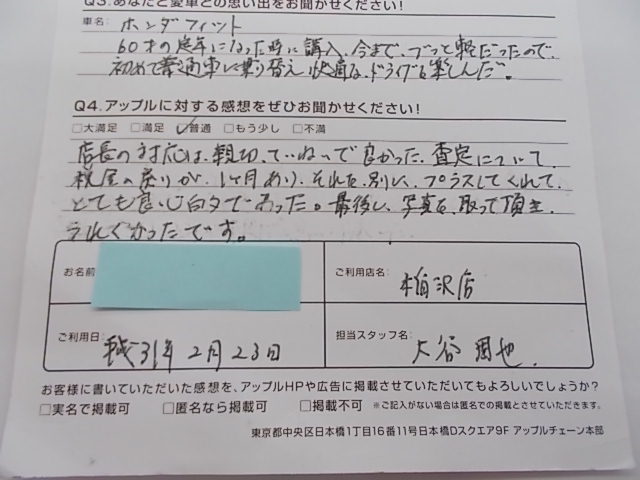 Q3.あなたと愛車との思い出をお聞かせください!
車名: ホンダフィット
60才の定年になった時に購入、今まで、ずっと軽だったので、
初めて普通車に乗り替え快適なドライブを楽しんだ。
Q4.アップルに対する感想をぜひお聞かせください!
□大満足 □満足 ☑普通 □もう少し □不満
店長の対応は、親切、ていねいで良かった。査定について、
税金の戻りが、1ヶ月あり、それを、別に、プラスしてくれて、
とても良い
であった。最後に、写真を、取って頂き、
うれしかったです。
お名前
ご利用店名: 柏沢店
ご利用日: 平成31年2月23日
担当スタッフ名: 大谷 也
お客様に書いていただいた感想を、アップルHPや広告に掲載させていただいてもよろしいでしょうか?
□実名で掲載可 □匿名なら掲載可 □掲載不可 ※ご記入がない場合は匿名での掲載とさせていただきます。
東京都中央区日本橋1丁目16番11号日本橋Dスクエア9F アップルチェーン本部